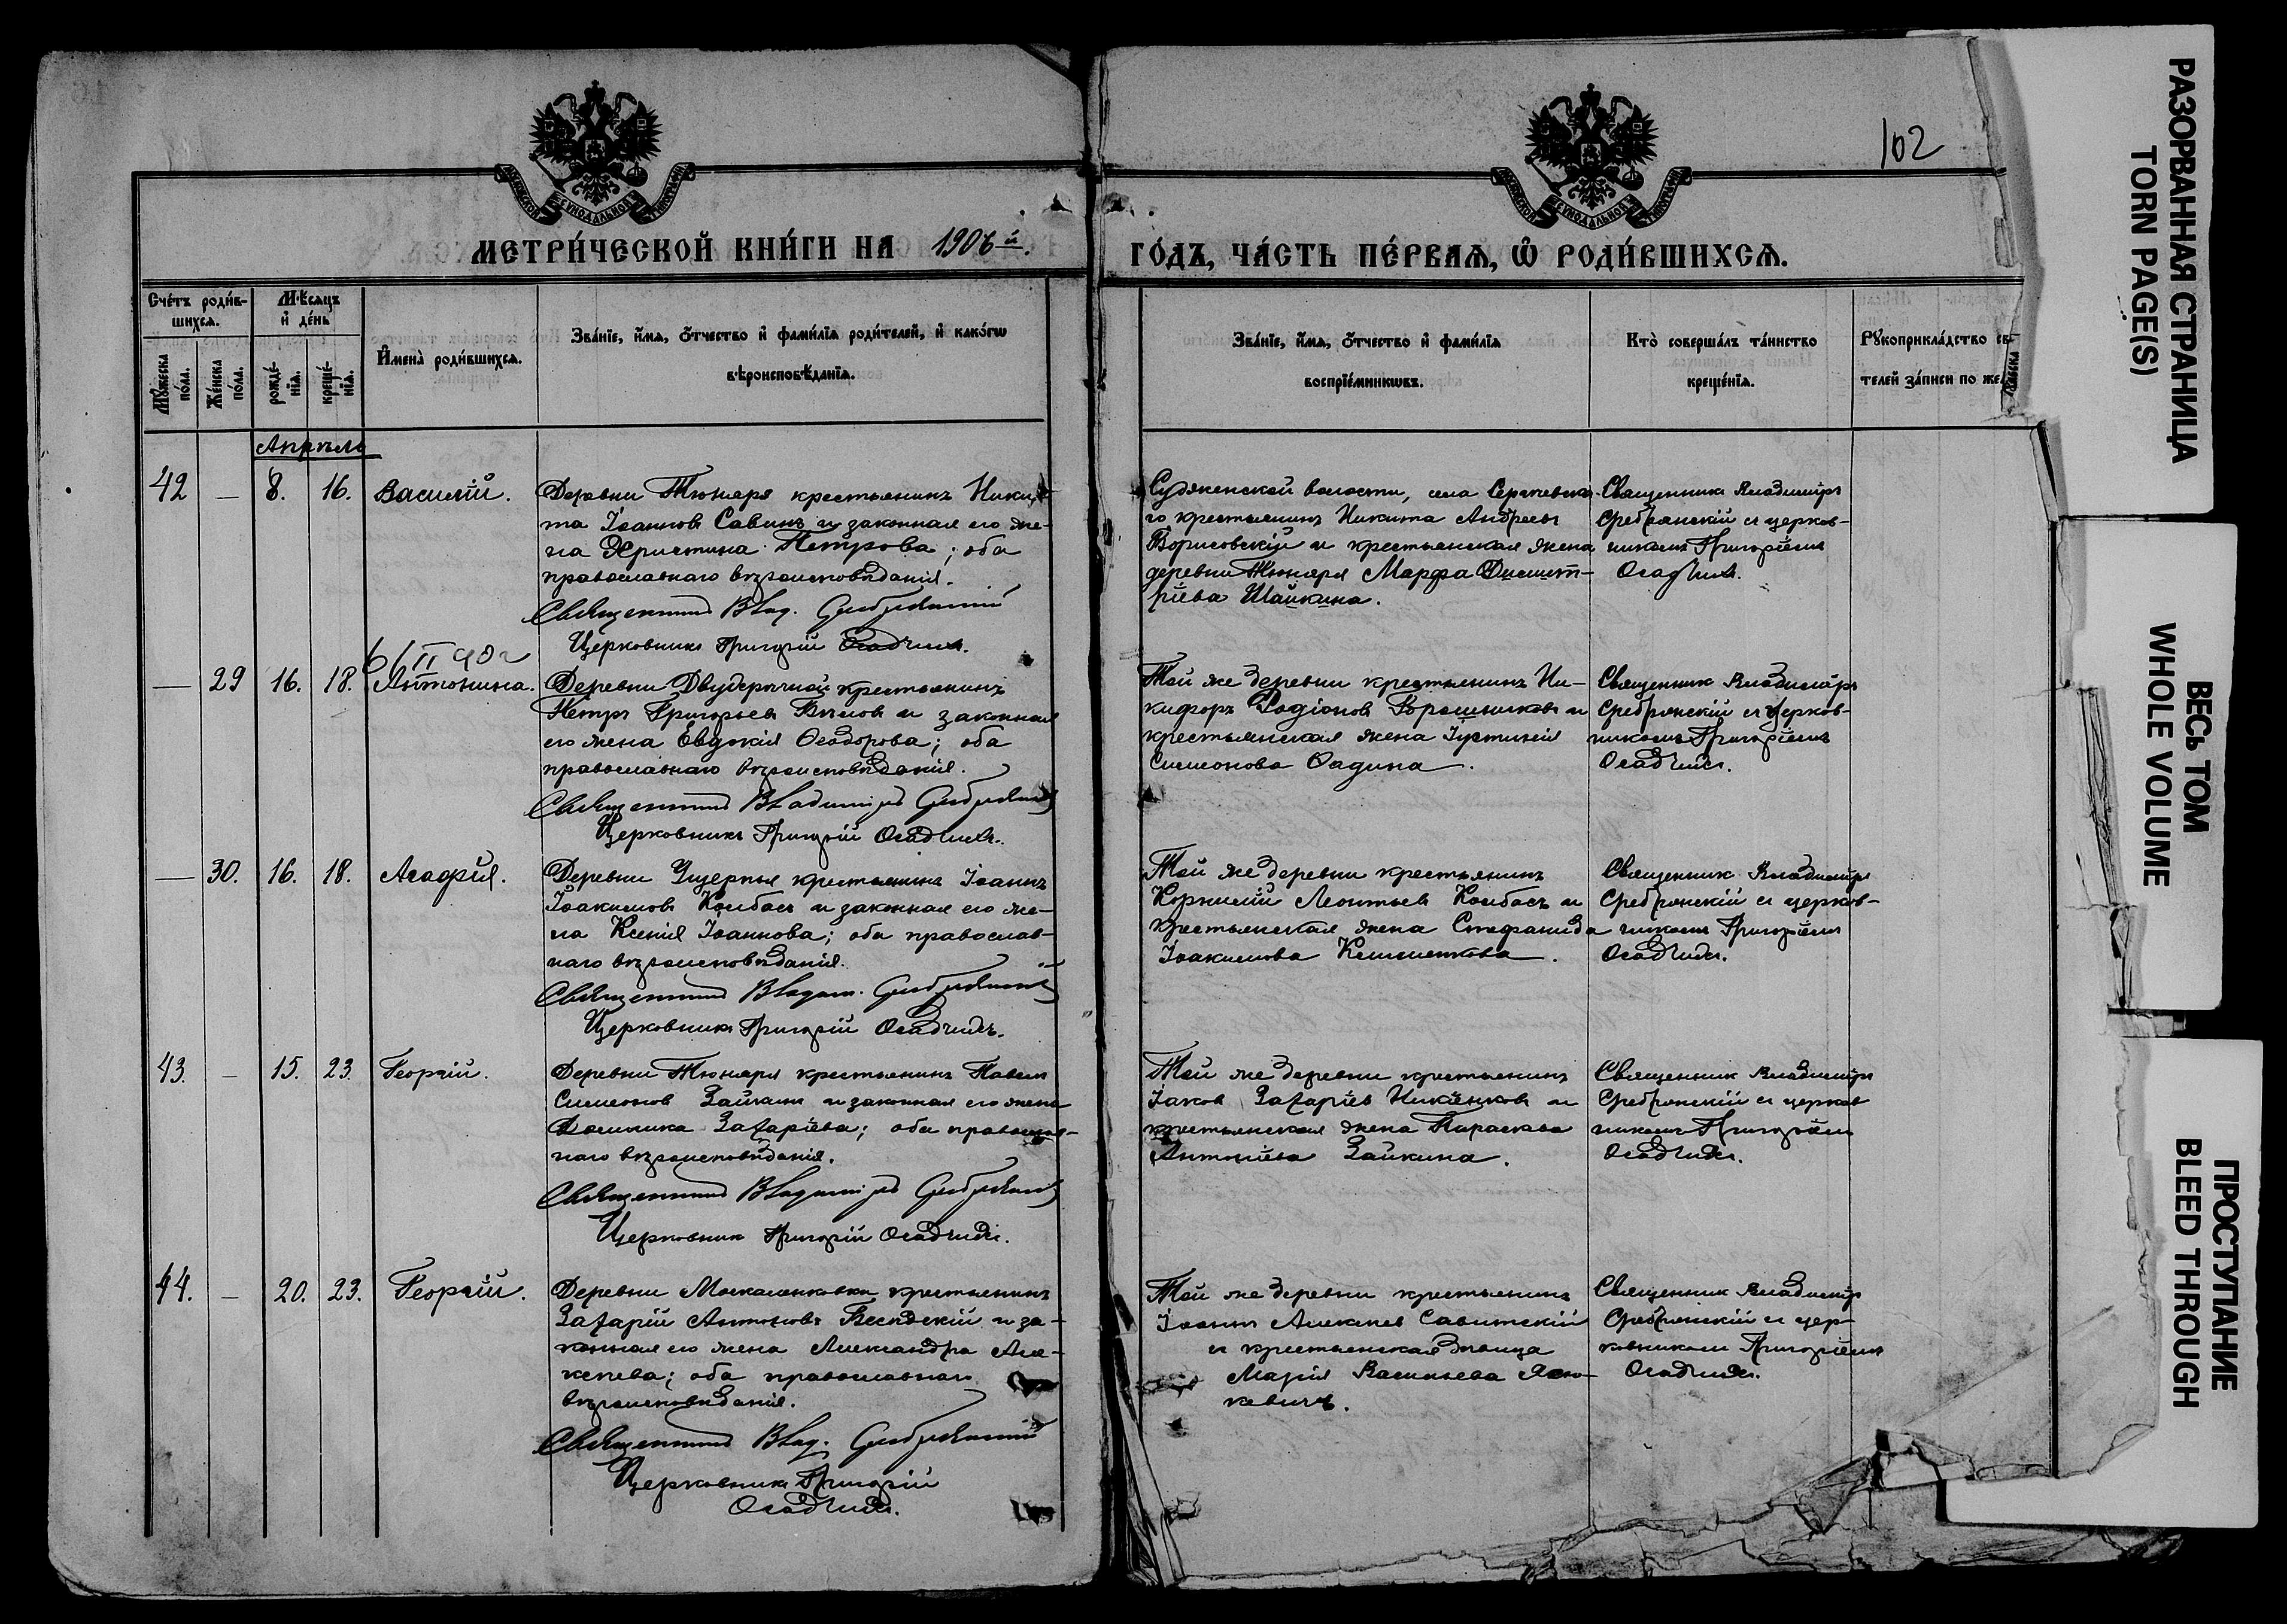 102
МЕТРИ́ЧЕСКОЙ КНИ́ГИ НА 1906 й. ГО́ДЪ, ЧА́СТЬ ПЕ́РВАЯ, Ѡ РОДИ́ВШИХСЯ.
Сче́тъ роди́в-
шихся.
Му́жеска по́ла.
Же́нска по́ла.
Мѣсяцъ и де́нь
рожде́-нія.
креще́-нія.
Имена̀ роди́вшихся.
Зва́ніе, и́мя, о́тчество и фами́лія роди́телей, и како́гѡ
вѣроисповѣ́данія.
Зва́ніе, и́мя, о́тчество и фами́лія
воспріе́мникѡвъ.
Кто̀ соверша́лъ та́инство
креще́нія.
Рукоприкла́дство св
телей за́писи по же
Апрѣль
42 — 8. 16. Василій.
Деревни Тюняря крестьянинъ Ники-
та Іоанновъ Савинъ и законная его же-
на Христина Петрова; оба
православнаго вѣроисповѣданія.
Священникъ Влад. Сребрянскій
Церковникъ Григорій Осадчій.
го крестьянинъ Никита Андреевъ
Борисовскій и крестьянская жена
деревни Тюняря Марфа Димит-
ріева Шайкина.
Священникъ Владиміръ
Сребрянскій и церков-
никомъ Григоріемъ
— 29 16. 18. Антонина.
Деревни Двудеричной крестьянинъ
Петръ Григорьевъ и законная
его жена Евдокія Ѳеодорова; оба
православнаго вѣроисповѣданія.
Священникъ Владиміръ Сребрянскій
Церковникъ Григорій Осадчій.
Той же деревни крестьянинъ Ни-
кифоръ Родіоновъ и
крестьянская жена Іустинія
Симеонова
Священникъ Владиміръ
Сребрянскій и церков-
никомъ Григоріемъ
— 30. 16. 18. Агафія.
Деревни Ущерпья крестьянинъ Іоаннъ
Іоакимовъ Колбасъ и законная его же-
на Ксенія Іоаннова; оба православ-
наго вѣроисповѣданія.
Священникъ Владим. Сребрянскій
Церковникъ Григорій Осадчій.
Той же деревни крестьянинъ
Корнилій Леонтьевъ Колбасъ и
крестьянская жена Стефанида
Іоакимова
Священникъ Владиміръ
Сребрянскій и церков-
никомъ Григоріемъ
43. — 15. 23. Георгій.
Деревни Тюняря крестьянинъ Павелъ
Симеоновъ Зайкинъ и законная его жена
Захаріева; оба православ-
наго вѣроисповѣданія.
Священникъ Владиміръ Сребрянскій
Церковникъ Григорій Осадчій.
Той же деревни крестьянинъ
Іаковъ Захаріевъ Никёнковъ и
крестьянская жена Параскева
Антоніева Зайкина.
Священникъ Владиміръ
Сребрянскій и церков
никомъ Григоріемъ
44. — 20. 23. Георгій.
Деревни Москаленковки крестьянинъ
Захарій Антоновъ и за-
конная его жена Александра Але-
ксѣева; оба православнаго
вѣроисповѣданія.
Священникъ Влад. Сребрянскій
Церковникъ Григорій
Осадчій.
Той же деревни крестьянинъ
Іоаннъ Алексѣевъ Савитскій
и крестьянская дѣвица
Марія Васильева
Священникъ Владиміръ
Сребрянскій и цер-
ковникомъ Григоріемъ
РАЗОРВАННАЯ СТРАНИЦА
TORN PAGE(S)
ВЕСЬ ТОМ
WHOLE VOLUME
ПРОСТУПАНИЕ
BLEED THROUGH